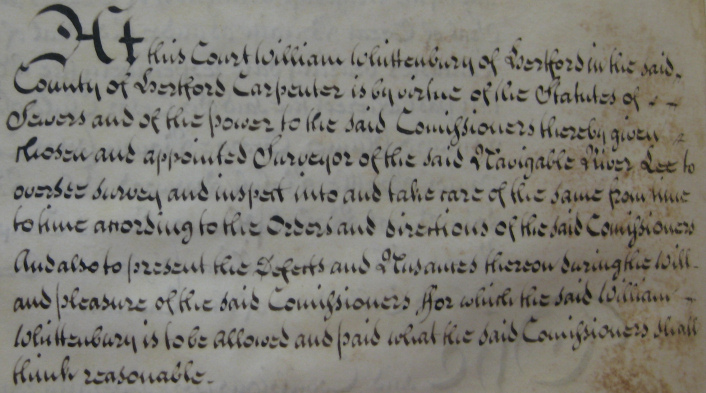 At this Court William Whittenbury of Hertford in the said
County of Hertford Carpenter is by virtue of the Statutes of
Sewers and of the power to the said Comissioners thereby given
chosen and appointed Surveyor of the said Navigable River Lee to
oversee survey and inspect into and take care of the same from time
to time according to the Orders and directions of the said Comissioners
And also to present the Defects and Nusances thereon during the Will
and pleasure of the said Comissioners ffor which the said William
Whittenbury is to be allowed and paid what the said Comissioners shall
think reasonable.